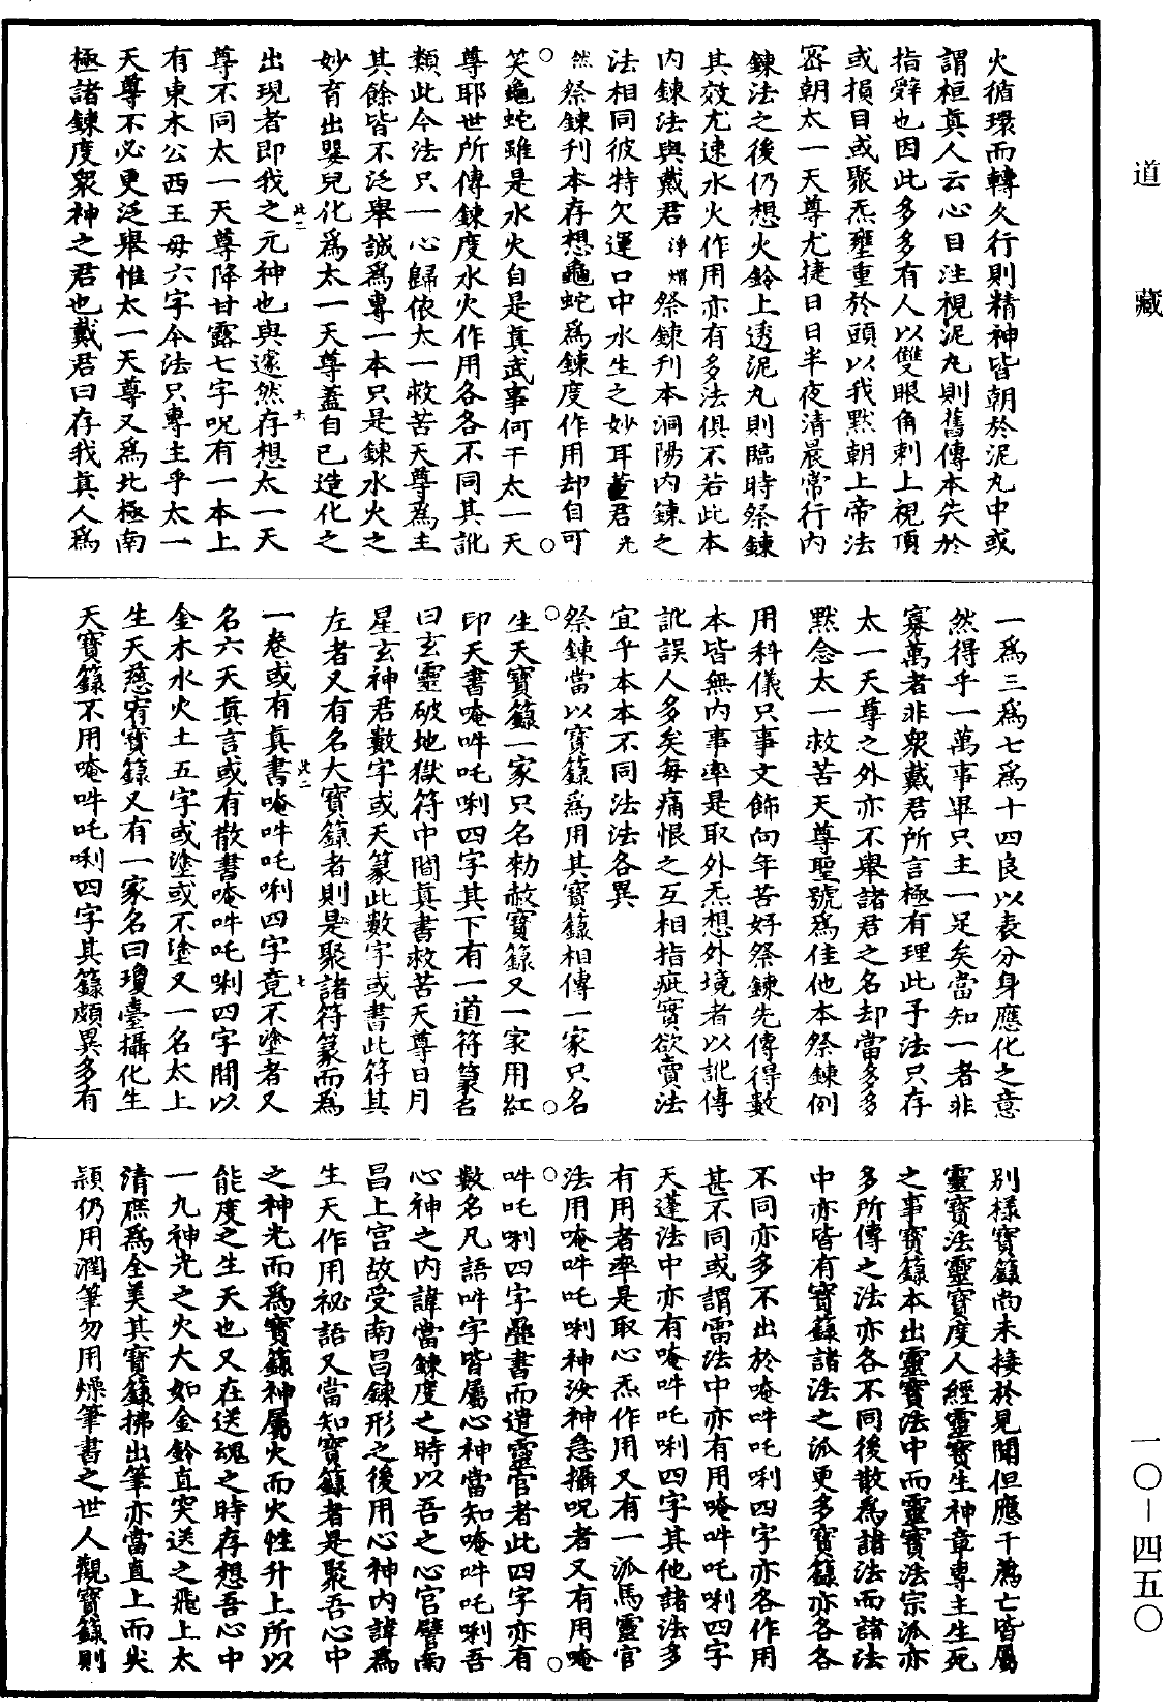 道藏
火循環而轉久行則精神皆朝於泥丸中或
謂桓真人云心目注視泥丸則舊傳本失於
指辭也因此多多有人以雙眼角刺上視頂
或損目或聚炁壅重於頭以我默朝上帝法
密朝太一天尊尤捷日日半夜清晨常行內
鍊法之後仍想火鈴上透泥丸則臨時祭鍊
其效尤速水火作用亦有多法俱不若此本
內鍊法與戴君淨熠祭鍊刊本洞陽內鍊之
法相同彼特欠運口中水生之妙耳董君光
然祭鍊刊本存想龜蛇為鍊度作用却自可
笑龜蛇雖是水火自是真武事何干太一天
尊耶世所傳鍊度水火作用各各不同其訛
類此今法只一心歸依太一救苦天尊為主
其餘皆不泛舉誠為專一本只是鍊水火之
妙育出嬰兒化為太一天尊蓋自己造化之
出現者即我之元神也與遽然存想太一天
尊不同太一天尊降甘露七字呪有一本上
有東木公西王母六字今法只專主乎太一
天尊不必更泛舉惟太一天尊又為北極南
極諸鍊度眾神之君也戴君曰存我真人為
一為三為七為十四良以表分身應化之意
然得乎一萬事畢只主一足矣當知一者非
寡萬者非眾戴君所言極有理此予法只存
太一天尊之外亦不舉諸君之名却當多多
默念太一救苦天尊聖號為佳他本祭鍊例
用科儀只事文飾向年苦好祭鍊先傳得數
本皆無內事率是取外炁想外境者以訛傳
訛誤人多矣每痛恨之互相指疵實欲賣法
宜乎本本不同法法各異
祭鍊當以寶籙為用其寶籙相傳一家只名
生天寶籙一家只名勑赦寶籙又一家用紅
印天書唵吽吒唎四字其下有一道符篆名
曰玄靈破地獄符中間真書救苦天尊日月
星玄神君數字或天篆此數字或書此符其
左者又有名大寶籙者則是聚諸符篆而為
一卷或有真書唵吽吒唎四字竟不塗者又
名六天真言或有散書唵吽吒唎四字間以
金木水火土五字或塗或不塗又一名太上
生天慈宥寶籙又有一家名曰瓊臺攝化生
天寶籙不用唵吽吒唎四字其籙頗異多有
別樣寶籙尚未接於見聞但應干為亡皆屬
靈寶法靈寶度人經靈寶生神章專主生死
之事寶籙本出靈寶法中而靈寶法宗派亦
多所傳之法亦各不同後散為諸法而諸法
中亦皆有寶籙諸法之派更多寶籙亦各各
不同亦多不出於唵吽吒唎四字亦各作用
甚不同或謂雷法中亦有用唵吽吒唎四字
天蓬法中亦有唵吽吒唎四字其他諸法多
有用者率是取心炁作用又有一派馬靈官
法用唵吽吒唎神決神急攝呪者又有用唵
吽吒唎四字疊書而遣靈官者此四字亦有
數名凡語吽字皆屬心神當知唵吽吒唎吾
心神之內諱當鍊度之時以吾之心官譬南
昌上宮故受南昌鍊形之後用心神內諱為
生天作用祕語又當知寶籙者是聚吾心中
之神光而為寶籙神屬火而火性升上所以
能度之生天也又在送魂之時存想吾心中
一九神光之火大如金鈴直突送之飛上太
清庶為全美其寶籙拂出筆亦當直上而尖
穎仍用潤筆勿用燥筆書之世人觀寶籙則
一〇－四五〇